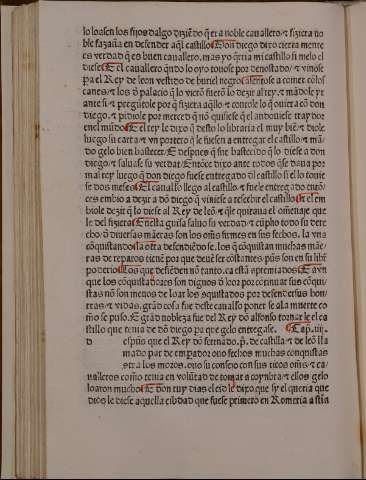 lo loasen los fijos dalgo diziẽdo q̃ era noble cauallero ⁊ fiziera no
ble fazaña en defender aq̃l castillo Don diego dixo cierta mente
es verdad q̃ es buen cauallero. mas yo q̃rria mi castillo si melo el
diese El cauallero q̃ndo lo oyo touose por denostado ⁊ vinose
pa el Rey de leon vestido de buriel negro ⁊ asentose a comer cõlos
canes ⁊ los ð palacio q̃ lo vierõ fuerõ lo dezir al rey. ⁊ mãdole yr
ante si ⁊ pregũtole por q̃ fiziera aq̃llo ⁊ contole lo q̃ oniera cõ don
diego. ⁊ pidiole por merced q̃ nõ quisiese q̃ el andouiese tray dor
enel mũdo El rey le dixo q̃ desto lo libraria el muy biẽ ⁊ diole
luego su carta ⁊ vn portero q̃ le fuesen a entregar el castillo ⁊ mã
do gelo bien bastecer. E despues q̃ fue bastecido q̃ lo diese a don
diego ⁊ saluase su verdat Entõce dixo ante todos q̃ se daua por
mal rey luego q̃ don diego fuese entregado ðl castillo si el lo touie
se dos meses El cauallo llego al castillo ⁊ fuele entregado entõ
ces embio a dezir a dõ diego q̃ viniese a rescebir el castillo ⁊ el em
biole dezir q̃ lo diese al Rey de leõ ⁊ q̃le quitaua el omenaje que
le del fiziera Enesta guisa saluo su verdad ⁊ cũplio todo su dere
cho. q̃ diuersas maeras son los oñes firmes en sus fechos. la vna
cõquistando ⁊ la otra defendiẽdo se. los q̃ cõquistan muchas mae
ras de reparos tienẽ por que deuẽ ser cõstantes. pues son en su libr̃
poderio Los que defiẽden nõ tanto. ca estã apremiados E avn
que los cõquistadores son dignos ð loor por continuar sus cõqui
stas nõ son menos de loar los cõquistados por defender sus hon
rras ⁊ vidas. grãd cosa fue deste cauallo poner se ala muerte co
mo se puso. E grãd nobleza fue del Rey dõ alfonso tornar le el ca
stillo que tenia de dõ diego pa que gelo entregase. Cap. iiij.
d espues que el Rey dõ fernado. p. de castilla ⁊ de leõ lla
mado par de emperador ouo fechos muchas conquistas
stra los moros. ouo su consejo con sus ricos oñes ⁊ ca
ualleros como tenia en volũtad de tomar a coynbra ⁊ ellos gelo
loaron mucho E don ruy dias el cid le dixo que sy el queria que
dios le diese aquella cibdad que fuese primero en Romeria a stia